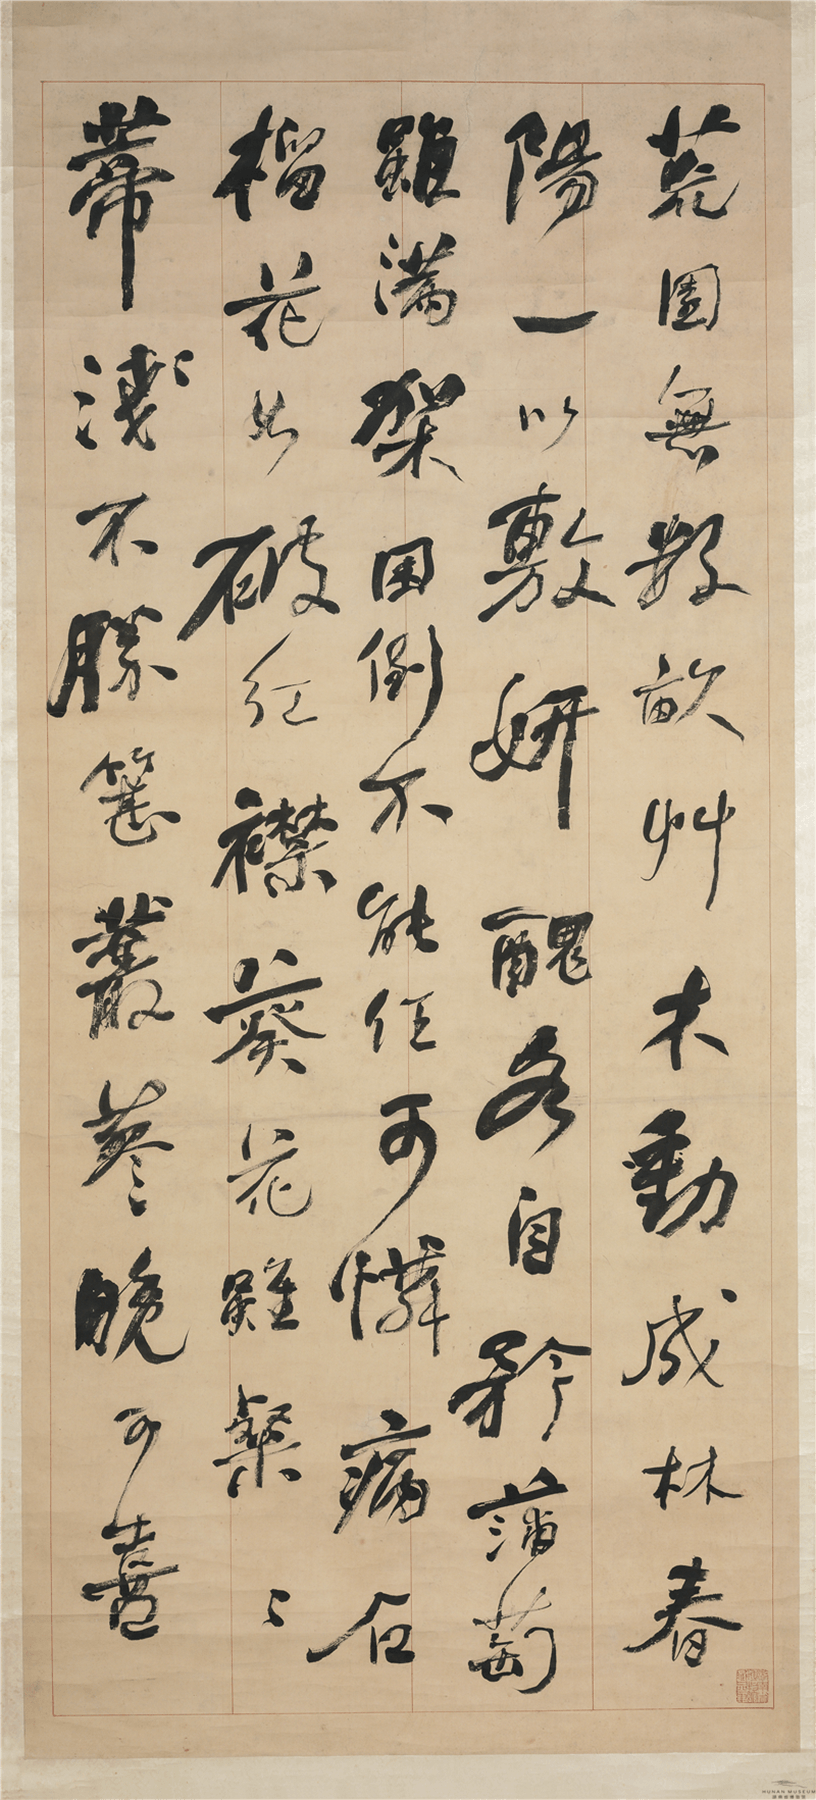 荒園無數畝艸木動成林春
陽一以敷妍醜各自矜蒲萄
雖滿架囷倒不能任可憐病石
榴花如破紅襟葵花雖粲〻
蒂淺不勝簪叢蓼晚可喜
HUNAN MUSEUM
湖南博物院